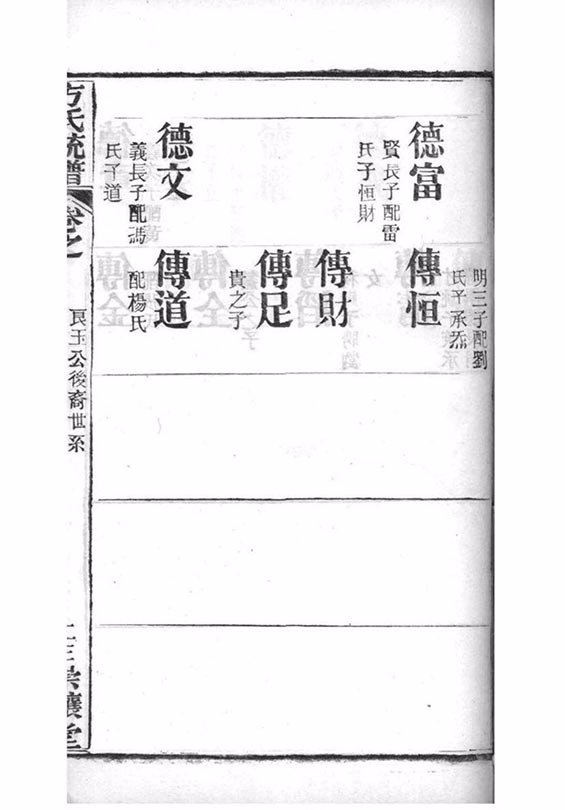 明三子配劉
氏子承烝
德富
賢長子配雷
氏子恒財
傳恒
傳財
傳足
貴之子
德文
義長子配馮
氏子道
傳道
配楊氏
方氏統譜
卷之
良玉公後裔世系